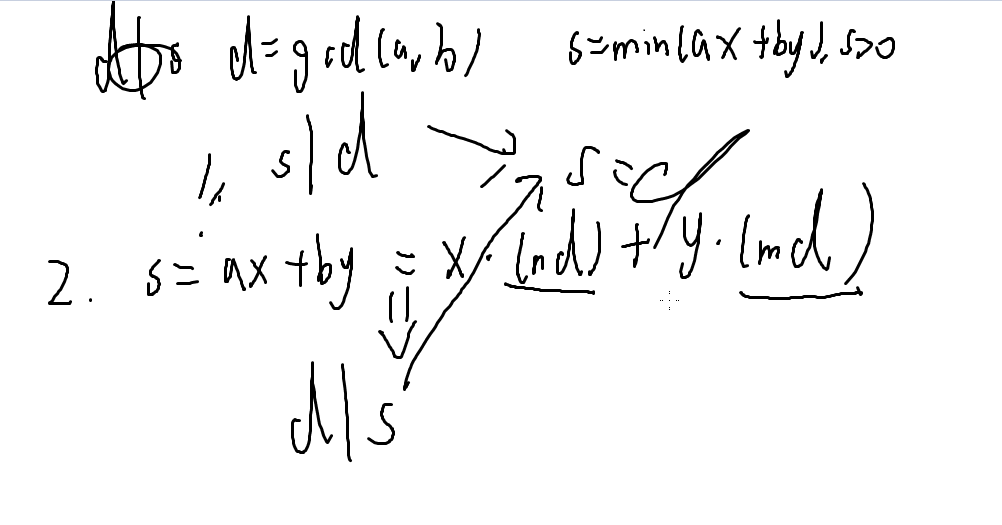 d=gcd(a,b) s=min(ax+by), s>0
1, s|d
s=d
2. s=ax+by = x·(nd)+y·(md)
⇓
d|s